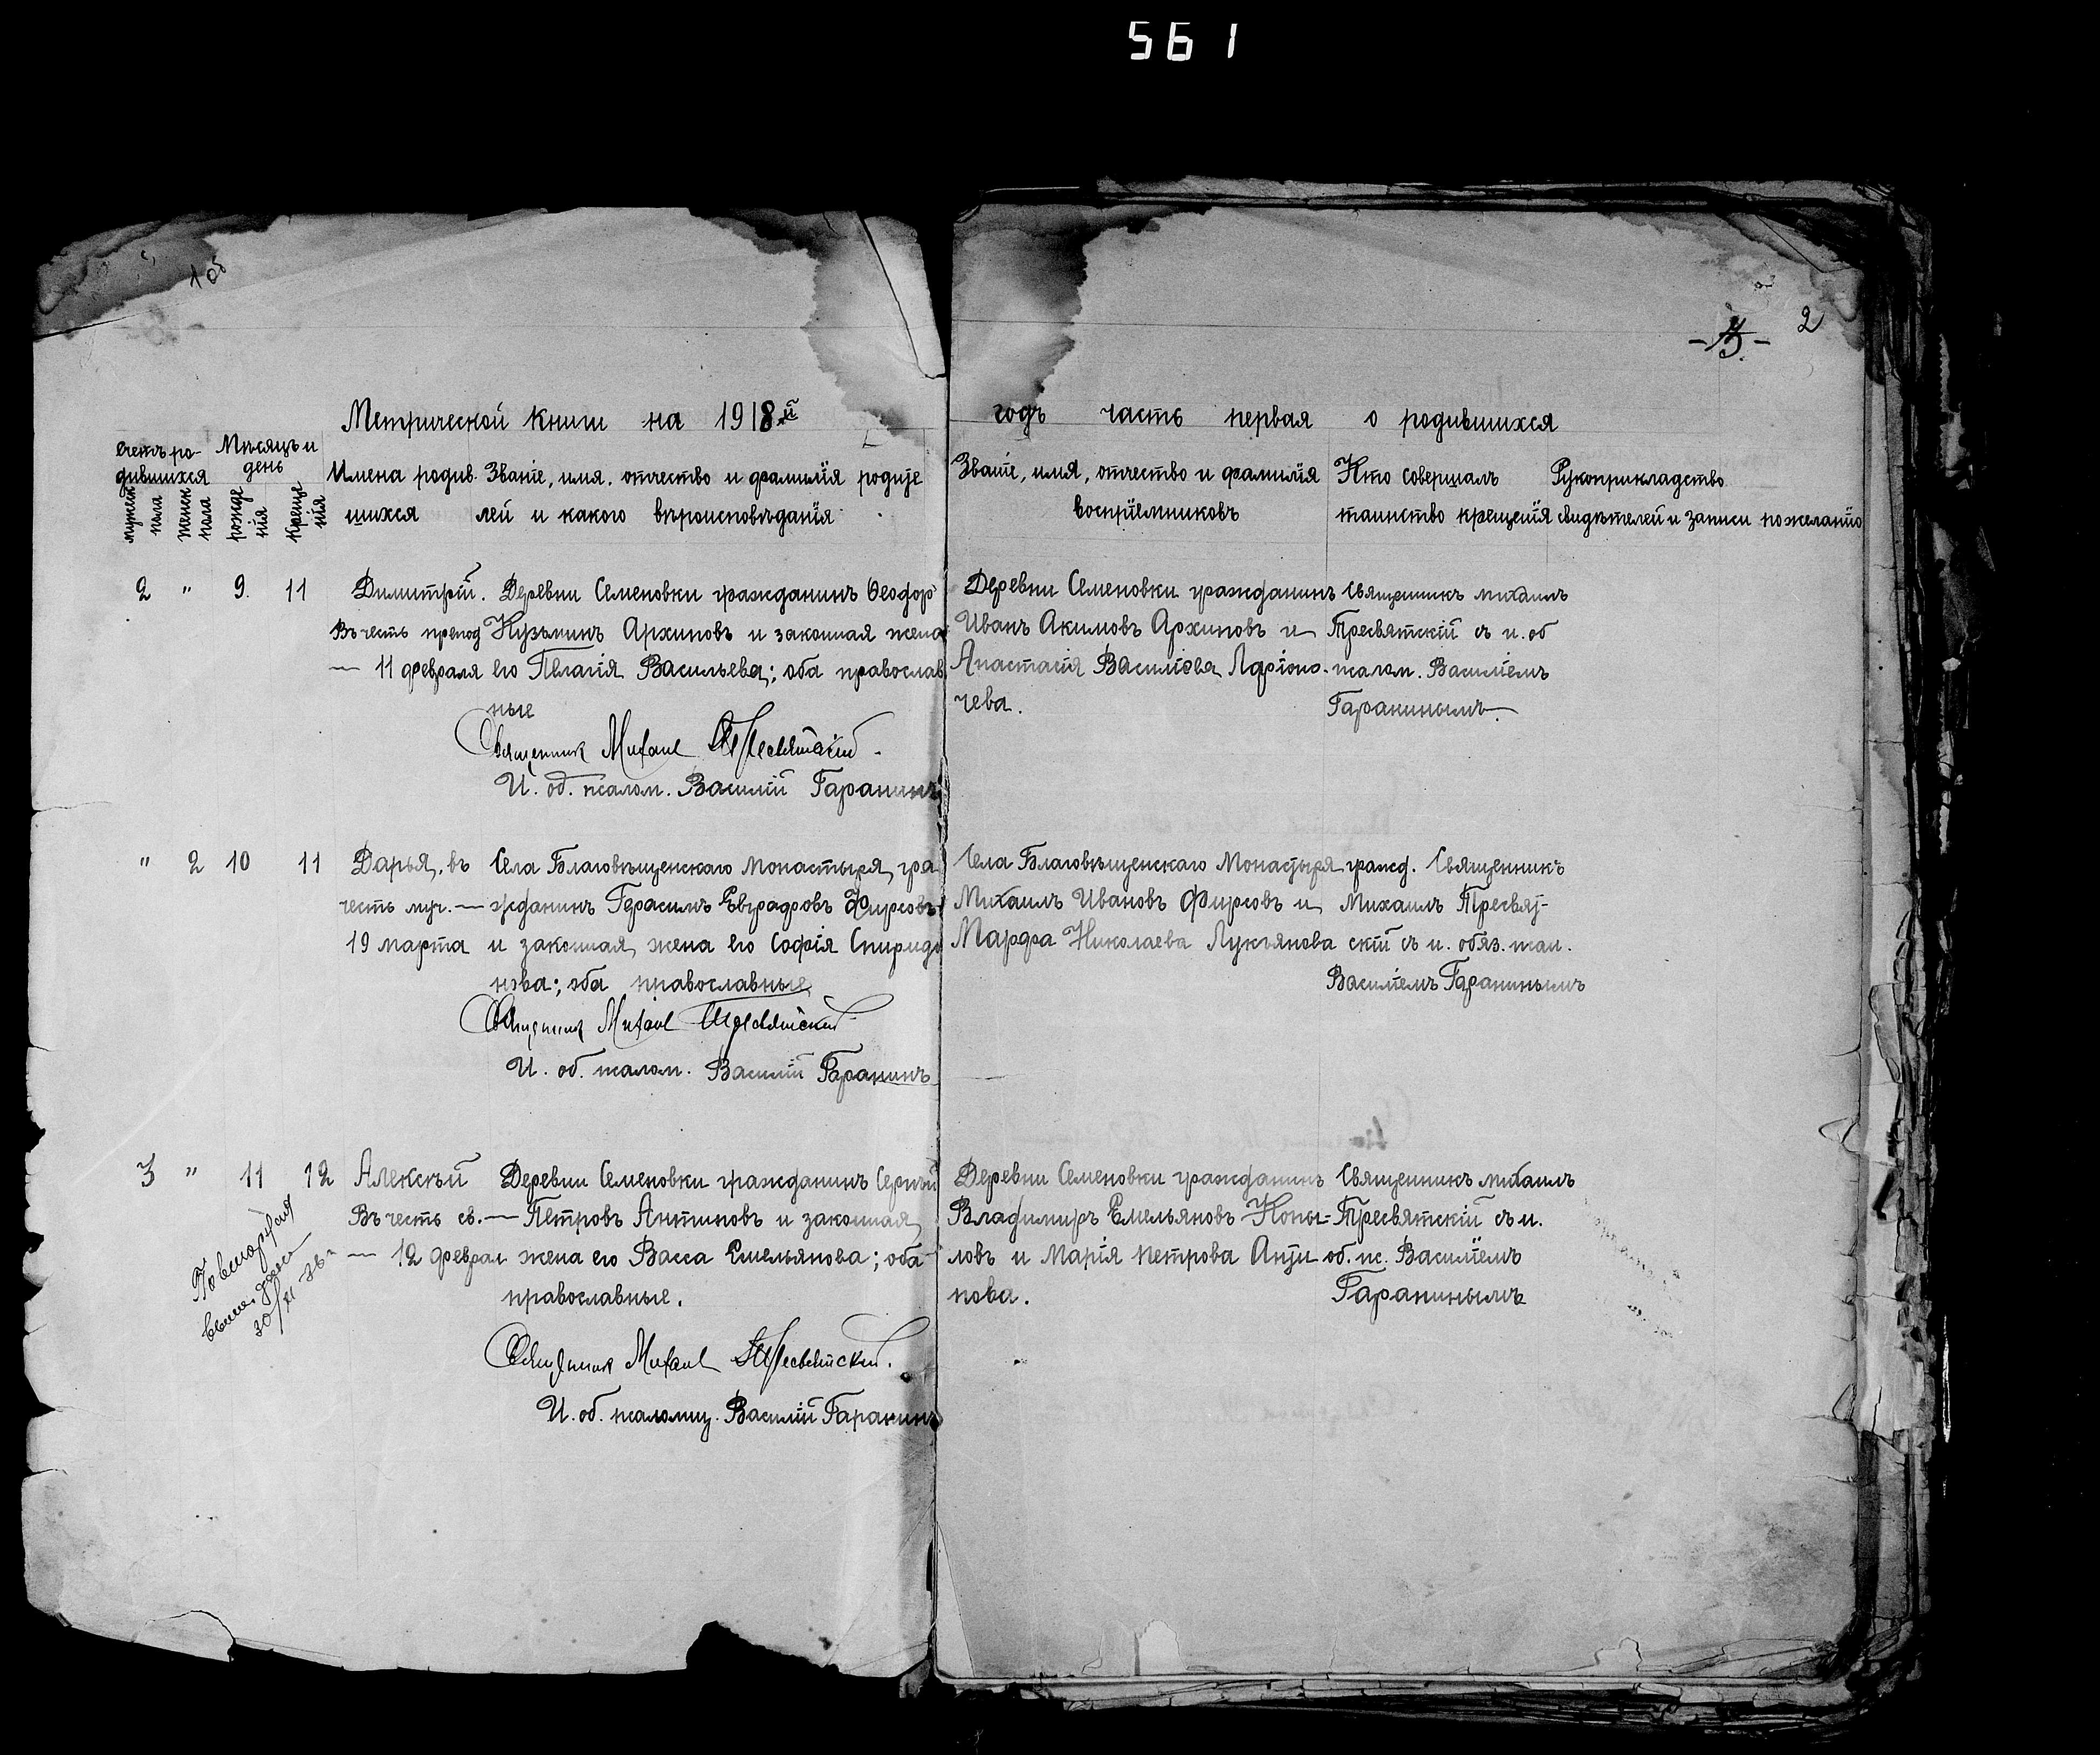 561
1 об
2
Метрической книги на 1918й годъ часть первая о родившихся
Счетъ родившихся
мужеск пола
женск пола
Мѣсяцъ и день
рожденія
крещенія
Имена родив. Званіе, имя, отчество и фамилія родите
шихся лей и какого вѣроисповѣданія
Званіе, имя, отчество и фамилія
воспріемниковъ
Кто совершалъ
таинство крещенія
Рукоприкладство
свидѣтелей и записи по желанію
2 " 9. 11 Димитрій. Деревни Семеновки гражданинъ Ѳеодоръ
Въ честь препод Кузьминъ Архиповъ и законная жена
— 11 февраля его Пелагія Васильева; оба православ
ные
Священник Михаил Тресвятскій.
И. об. псалом. Василій Гаранинъ
Деревни Семеновки гражданинъ
Иванъ Акимовъ Архиповъ и
Анастасія Васильева Ларіоно-
чева.
Священникъ Михаилъ
Тресвятскій съ и. об
псалом. Василіемъ
Гаранинымъ.
" 2 10 11 Дарья, въ Села Благовѣщенскаго Монастыря, гра
честь муч. — жданинъ Герасимъ Евграфовъ Фирсовъ
19 марта и законная жена его Софія Спиридо
нова; оба православные
Священник Михаил Тресвятский
И. об. псалом. Василій Гаранинъ
Села Благовѣщенскаго Монастыря гражд.
Михаилъ Ивановъ Фирсовъ и
Марфа Николаева Лукъянова
Священникъ
Михаилъ Тресвят-
скій съ и. обяз. псал.
Василіемъ Гаранинымъ
3 " 11 12 Алексѣй Деревни Семеновки гражданинъ Сергѣй
Въ честь св. — Петровъ Антиповъ и законная
— 12 феврал жена его Васса Емельянова; оба
православные.
30/XI
Священник Михаил Тресвятский.
И. об. псаломщ. Василій Гаранинъ
Деревни Семеновки гражданинъ
Владимиръ Емельяновъ Копы-
ловъ и Марія Петрова Анти
пова.
Священникъ Михаилъ
Тресвятскій съ и.
об. пс. Василіемъ
Гаранинымъ